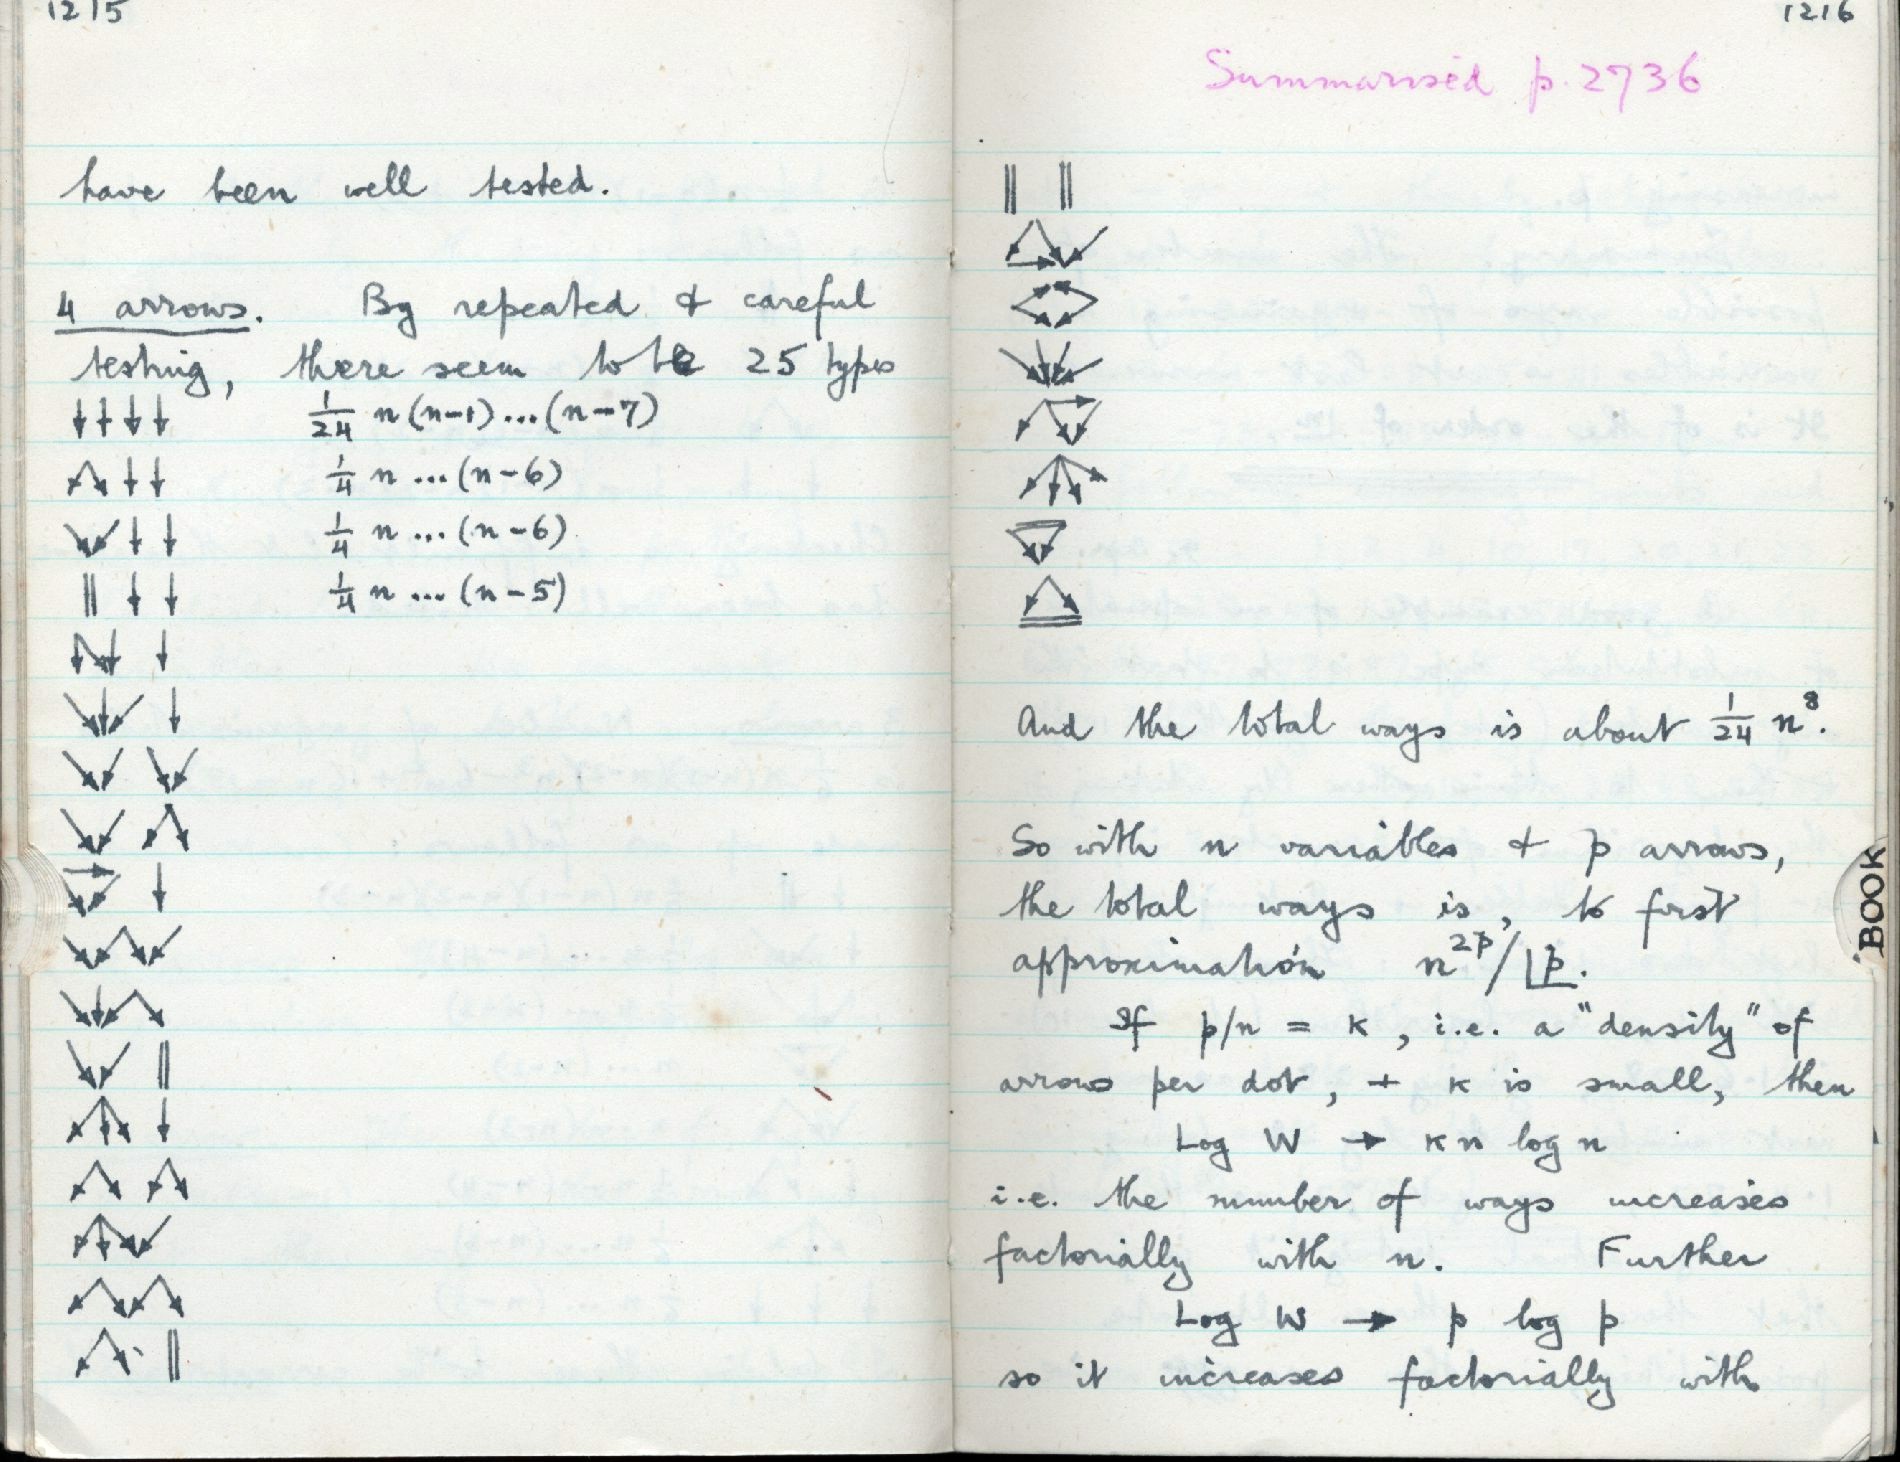 1215
have been well tested.
4 arrows. By repeated & careful
testing, there seem to be 25 types
1/24 n(n-1)...(n-7)
1/4 n ...(n-6)
1/4 n ...(n-6)
1/4 n ... (n-5)
1216
Summarised p. 2736
And the total ways is about 1/24 n⁸.
So with n variables & p arrows,
the total ways is, to first
approximation n²ᵖ/|p.
If p/n = κ, i.e. a "density" of
arrows per dot, + κ is small, then
Log W → κ n log n
i.e. the number of ways increases
factorially with n. Further
Log W → p log p
so it increases factorially with
BOOK